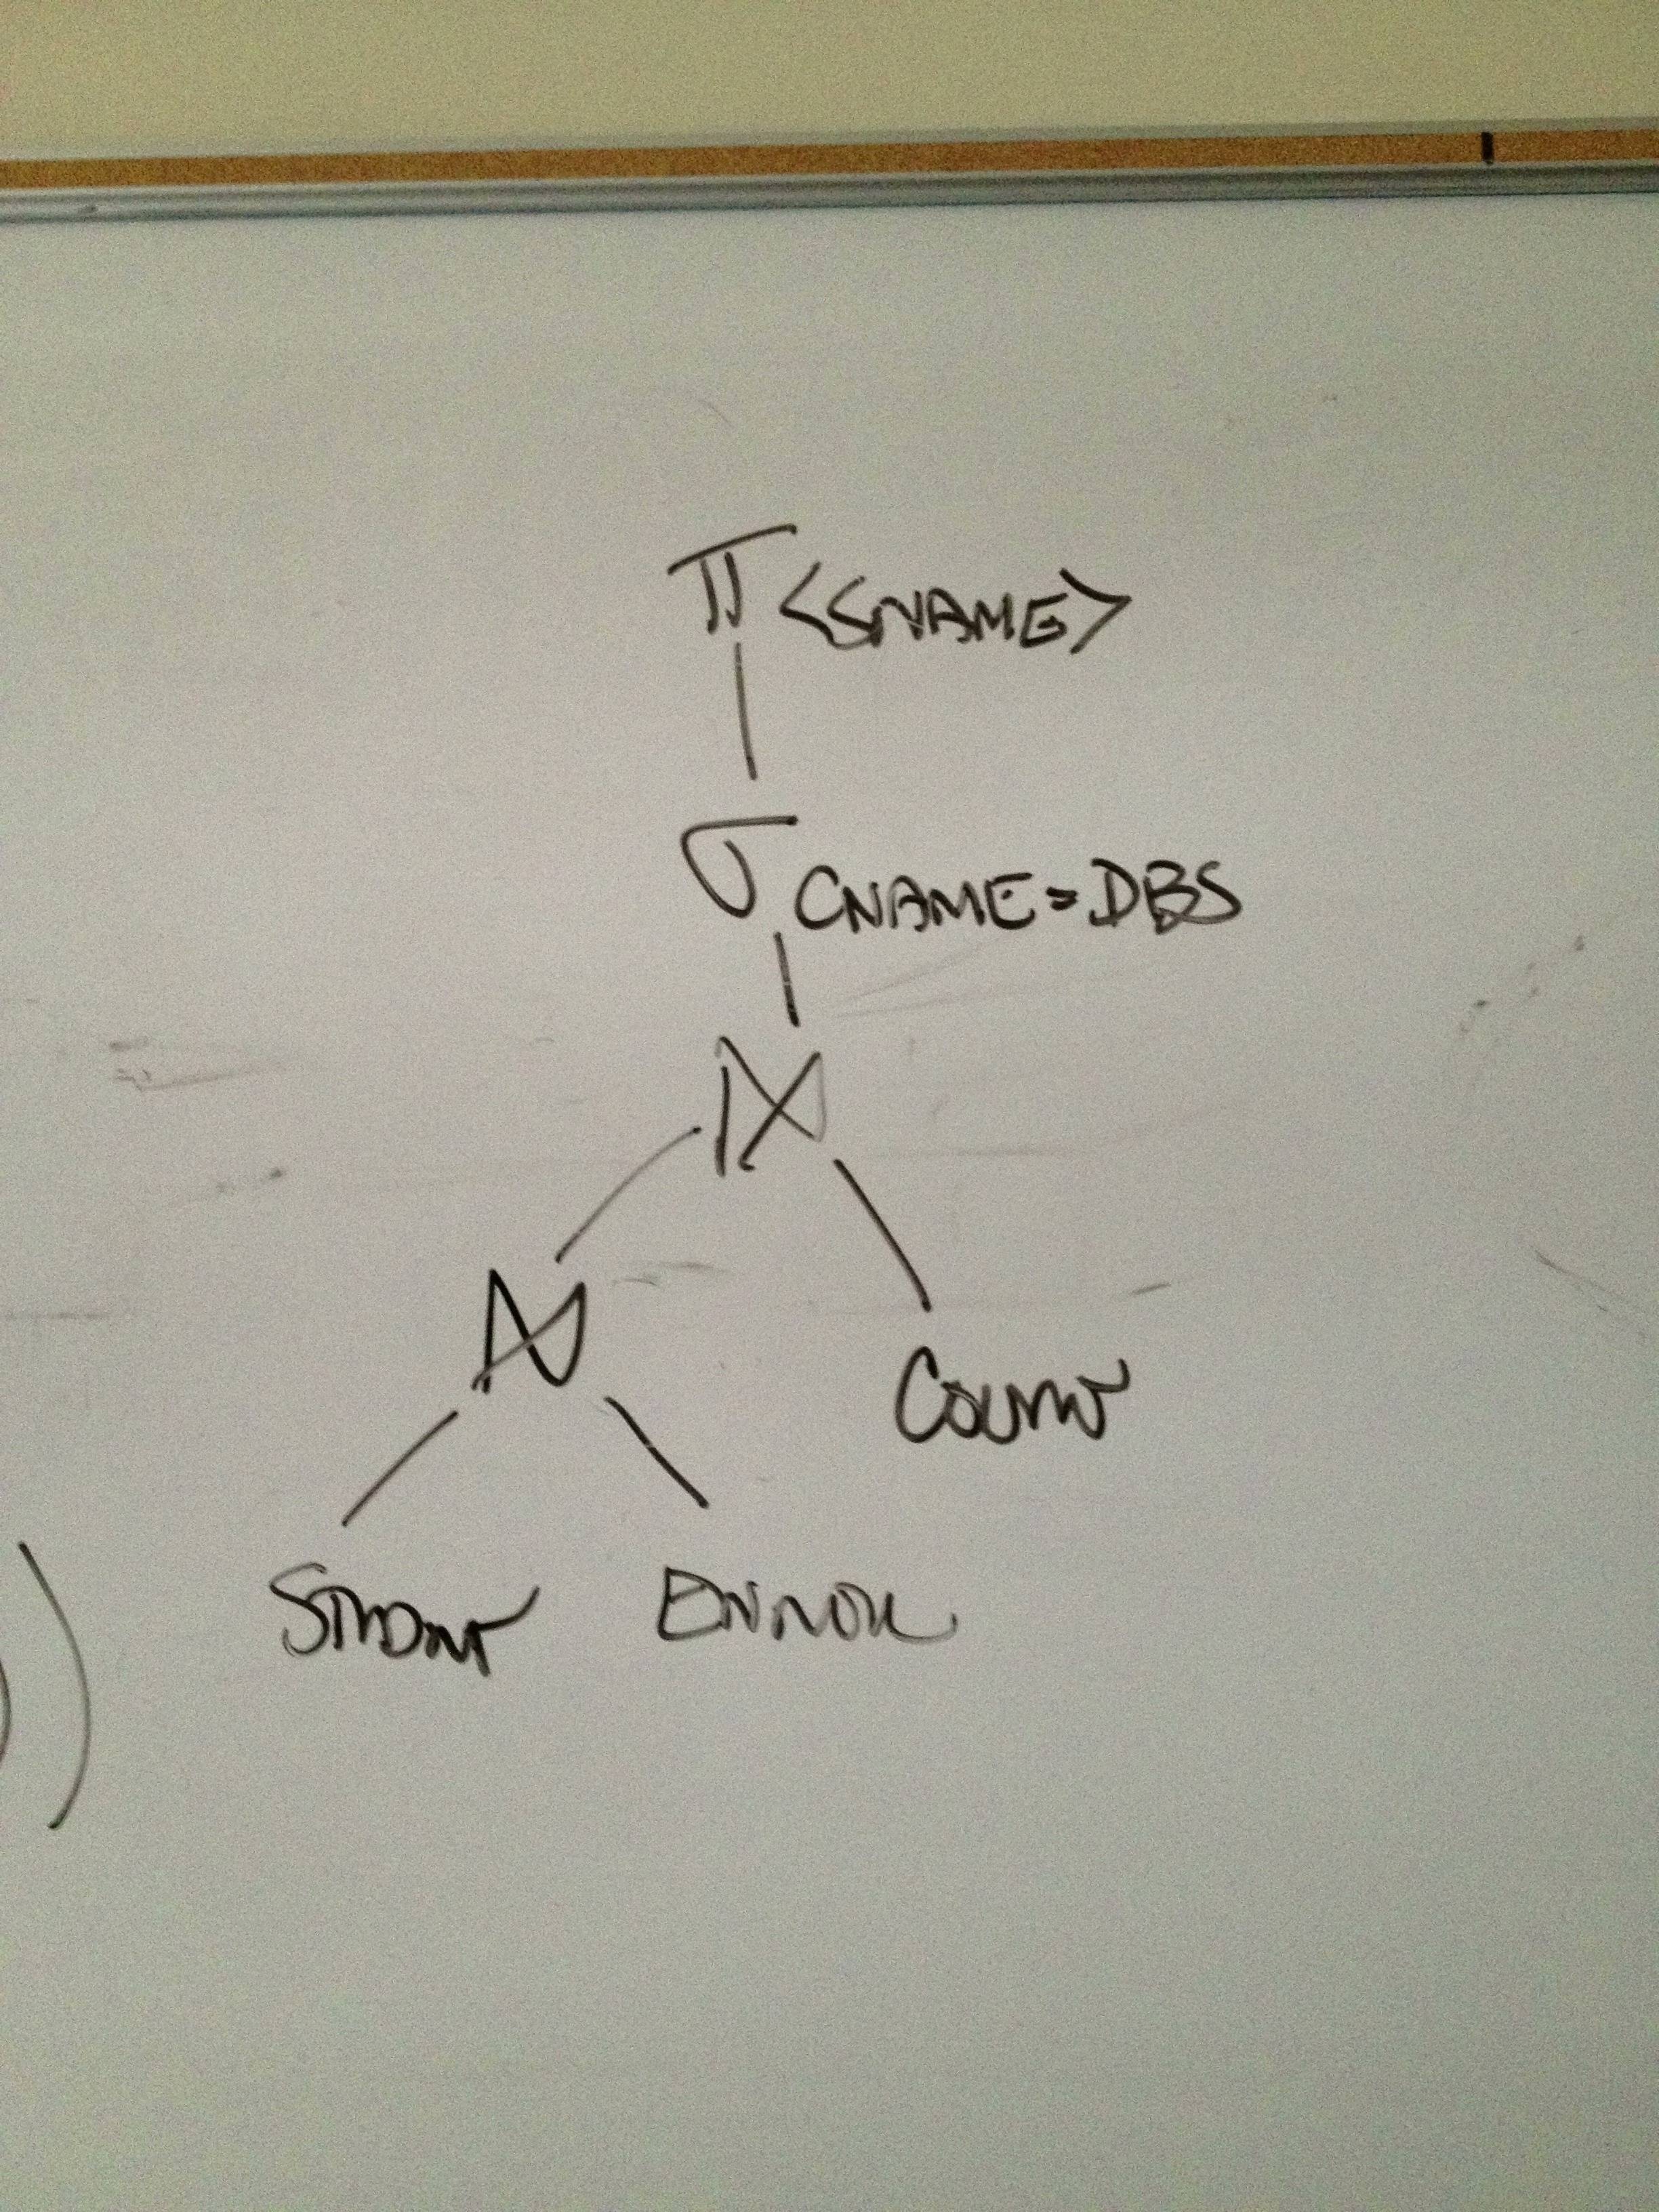 π <SNAME>
σ CNAME = DBS
⋈
⋈
Course
Student Enroll
)